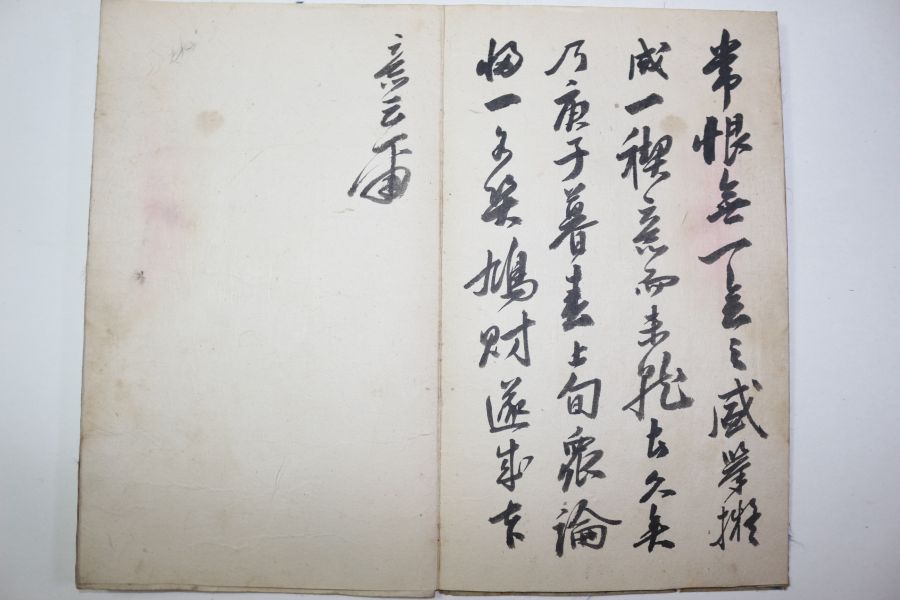 常恨無一會之盛擧擬
成一稧意而未能者久矣
乃庚子暮春上旬衆論
歸一各癸鳩財遂成右
意云爾